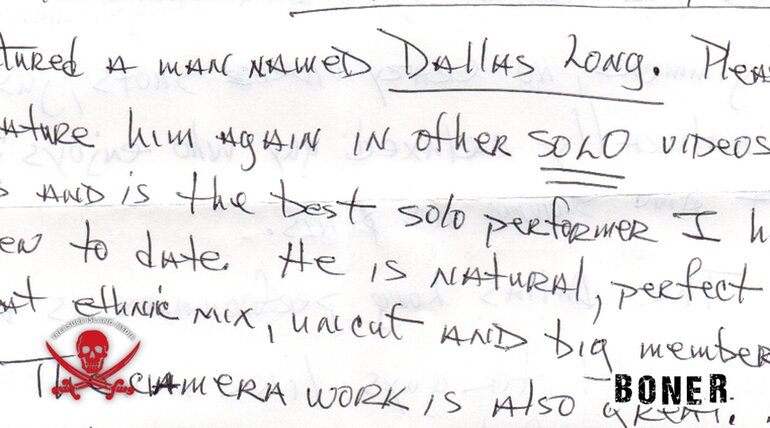 tured A MAN NAMED DALLAS Long. Pleas
ature him AGAIN IN other SOLO VIDEOS
AND is the best solo performer I h
en to date. He is NATURAL, perfect
at ethnic MIX, uncut AND big member
The CAMERA WORK is Also great.
TREASURE ISLAND MEDIA
BONER.